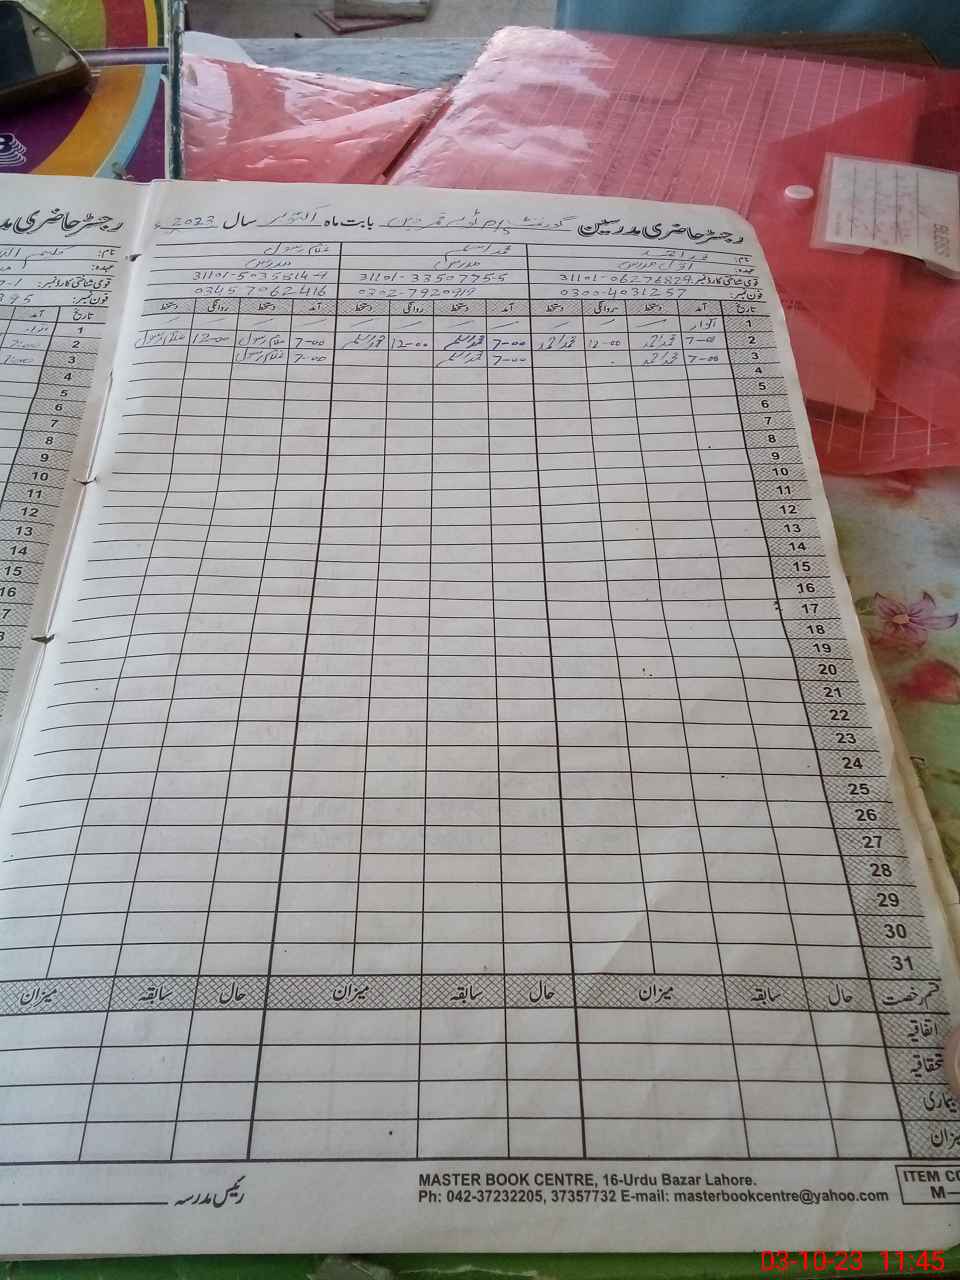 رجسٹر حاضری مدرسین گورنمنٹ بابت ماہ اکتوبر سال 2023ء
نام: محمد اسلم غلام رسول
عہدہ: اول مدرس مدرس مدرس
قومی شناختی کارڈ نمبر 31101-0627682 31101-3350775-5 31101-5035814-9
فون نمبر: 0300-4031257 0302-7920919 0345-7062416
تاریخ آمد دستخط روانگی دستخط آمد دستخط روانگی دستخط آمد دستخط روانگی دستخط
1 اتوار
2 7-00 محمد احمد 12-00 محمد احمد 7-00 محمد اسلم 12-00 محمد اسلم 7-00 غلام رسول 12-00 غلام رسول
3 7-00 محمد احمد 7-00 محمد اسلم 7-00 غلام رسول
4
5
6
7
8
9
10
11
12
13
14
15
16
17
18
19
20
21
22
23
24
25
26
27
28
29
30
31
قسم رخصت حال سابقہ میزان حال سابقہ میزان حال سابقہ میزان
اتفاقیہ
تحقاقیہ
بیماری
میزان
رئیس مدرسہ
MASTER BOOK CENTRE, 16-Urdu Bazar Lahore.
Ph: 042-37232205, 37357732 E-mail: masterbookcentre@yahoo.com
ITEM CO
M-
رجسٹر حاضری مد
نام:
عہدہ:
قومی شناختی کارڈ نمبر:
فون نمبر:
تاریخ آمد
1
2 7:00
3
4
5
6
7
8
9
10
11
12
13
14
15
16
03-10-23 11:45